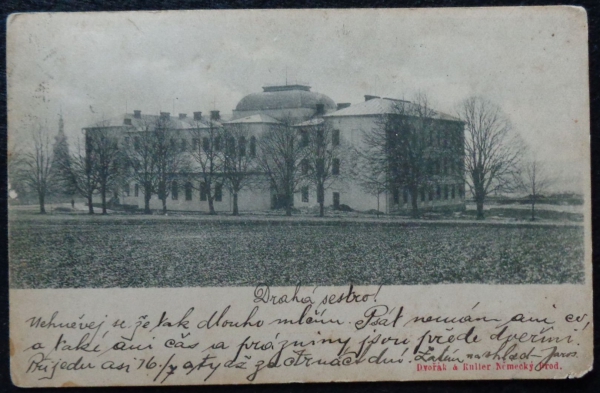 Drahá sestro!
Nehněvej se, že tak dlouho mlčím. Psát nemám ani co,
a také ani čas a prázniny jsou přede dveřmi.
Přijedu asi 16./7 a ty až za čtrnáct dní. Zatím na shled- Jaros.
Dvořák a Rutier Německý Brod.